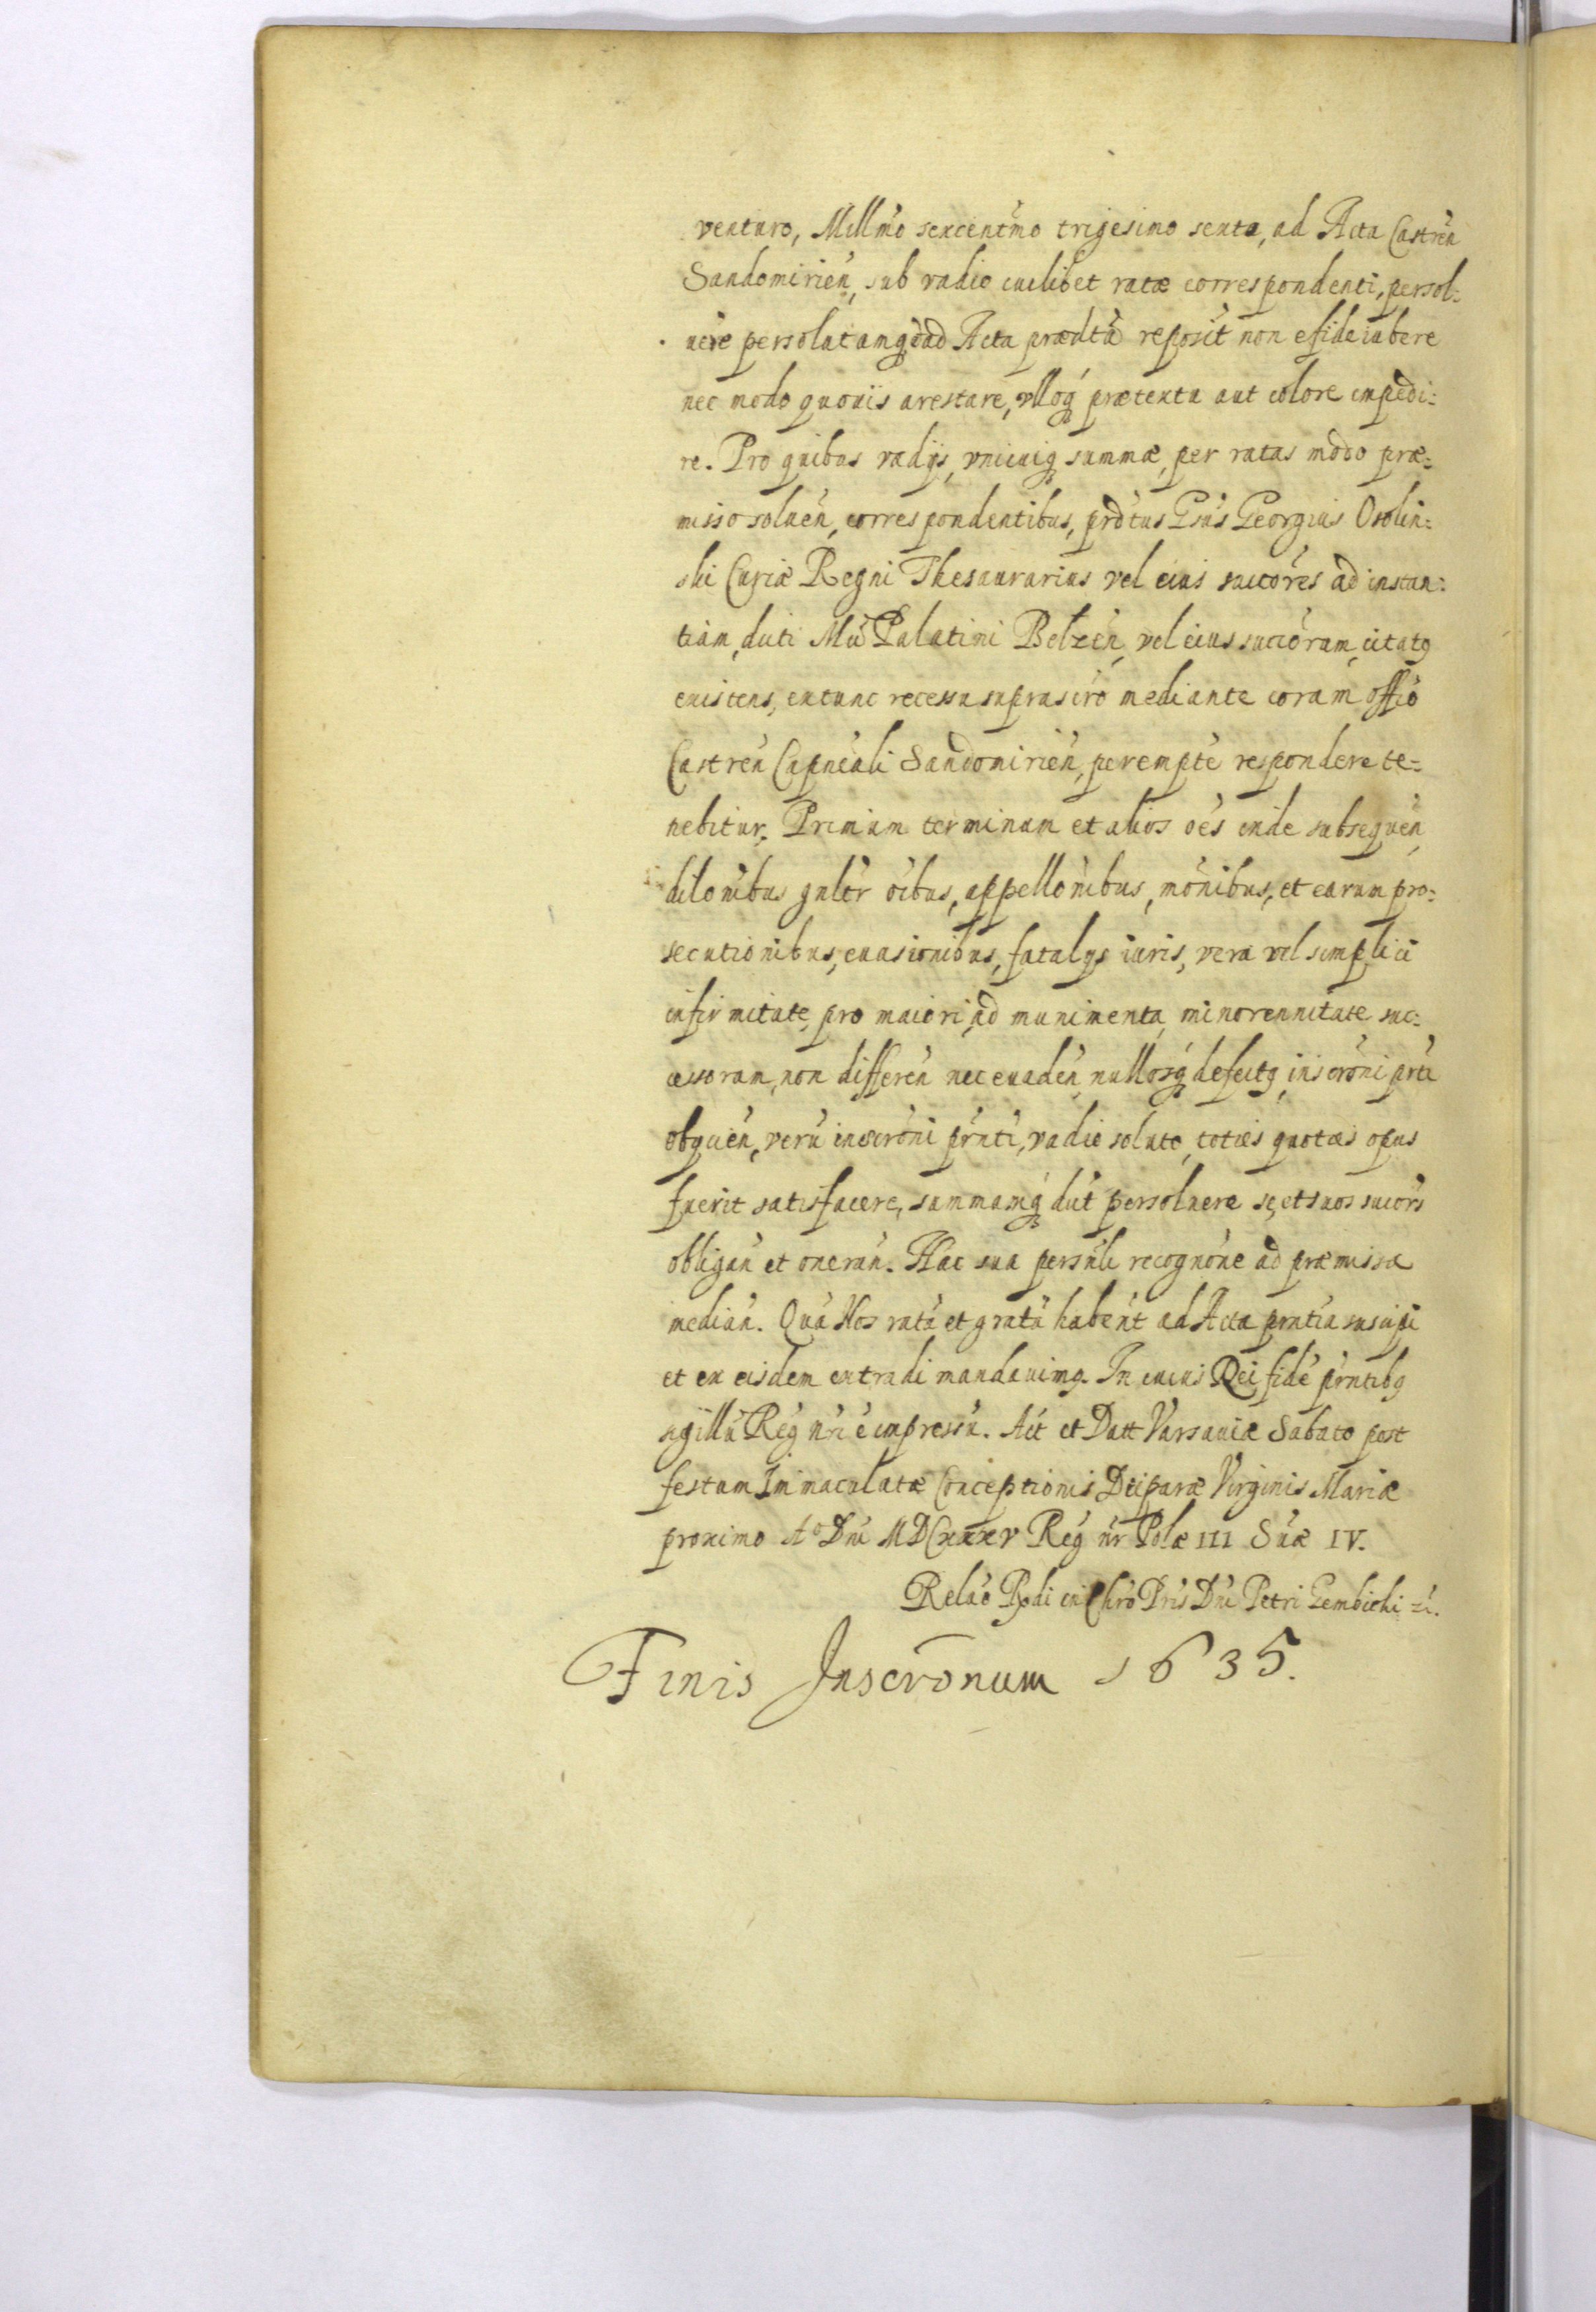 venturo, Mill'mo sexcent'mo trigesimo sexto, ad Acta Castren̄
Sandomirien̄, sub vadio cuilibet ratæ correspondenti, persol:
uere persolutamq̄ ad Acta prædta reposit non efideiubere
nec modo quouis arestare, vlloq̄ prætextu aut colore impedi:
re. Pro quibus vadijs, vnicuiq̄ summæ, per ratas modo præ:
misso soluen̄, correspondentibus, prdtus Gsus Georgius Osolin:
ski Curiæ Regni Thesaurarius vel eius succōres ad instan:
tiam, dicti Mci Palatini Belzen̄, vel eius succōrum, citatg
existens, extunc recessu suprascrō mediante coram offiō
Castren̄ Capneali Sandomirien̄, perempte respondere te=
nebitur. Primum terminum et alios ōes inde subsequen̄,
dilōnibus gnlēr oībus, appellōnibus, mōnibus, et earum pro:
secutionibus, euasionibus, fatalijs iuris, vera vel simplici
infirmitate, pro maiori, ad munimenta, minorennitate suc:
cessorum, non differen̄ nec euaden̄, nullosq̄ defectg, inscrōni prti
obycien̄, verū inscrōni prnti, vadio soluto, toties quoties opus
fuerit satisfacere, summamq̄ dict persoluere se, et suos succōrs
obligan̄ et oneran̄. Hac sua persnli recognōne ad præmissa
median̄. Quā Nos ratā et gratā habent ad Acta prntia suscipi
et ex eisdem extradi mandauimg. In cuius Rei fidē prntibg
sigillū Reg nri ē impressū. Act et Datt Varsauiæ Sabato post
festum Immaculatæ Conceptionis Deiparæ Virginis Mariæ
proximo Aº Dni MDCxxxv Reg nr Polæ III Suæ IV.
Relaō Rndi in Chrō Pris Dni Petri Gembicki
Finis Inscrōnum 1635.